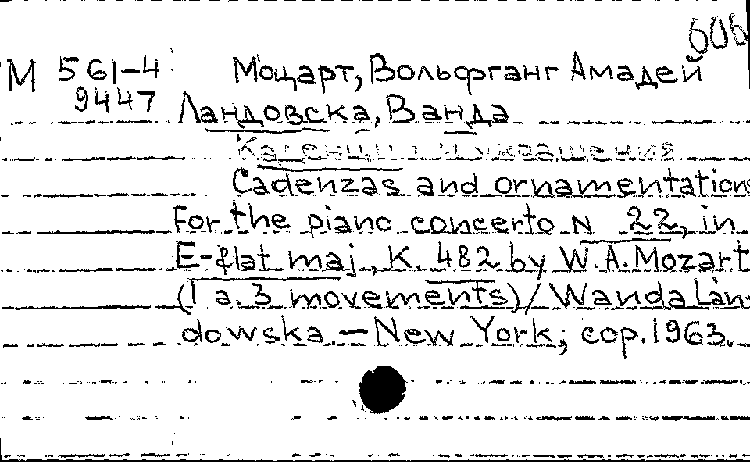 606
М 561-4 Моцарт, Вольфганг Амадей
9447 Ландовска, Ванда
Каденции и украшения
Cadenzas and ornamentations
For the piano concerto N 22, in
E-flat maj., K. 482 by W.A. Mozart
(1 a. 3 movements) / Wanda Lan-
dowska. — New York; cop. 1963.